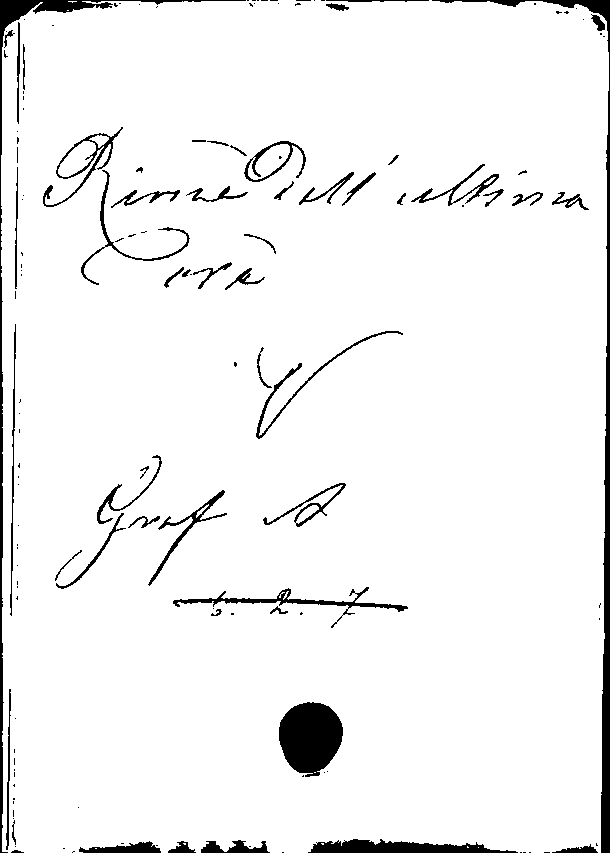 Rime dell' ultima
ora
V
Graf A
6. 2. 7